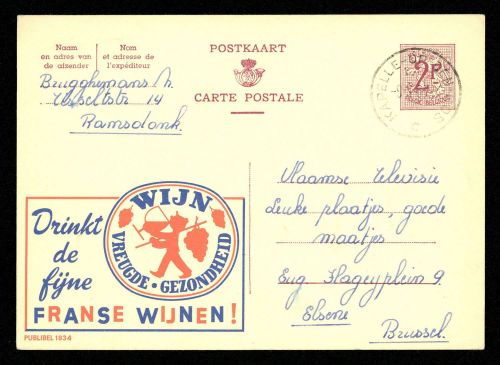 Naam
en adres van
de afzender
Nom
et adresse de
l'expéditeur
POSTKAART
CARTE POSTALE
2F
KAPELLE-OP-DEN-BOS
C
Brugghemans
14
Ramsdonk.
Vlaamse Televisie
Leuke plaatjes, goede
maatjes
Eug. Flageyplein 9.
Elsene
Brussel.
WIJN
VREUGDE · GEZONDHEID
Drinkt
de
fijne
FRANSE WIJNEN!
PUBLIBEL 1934